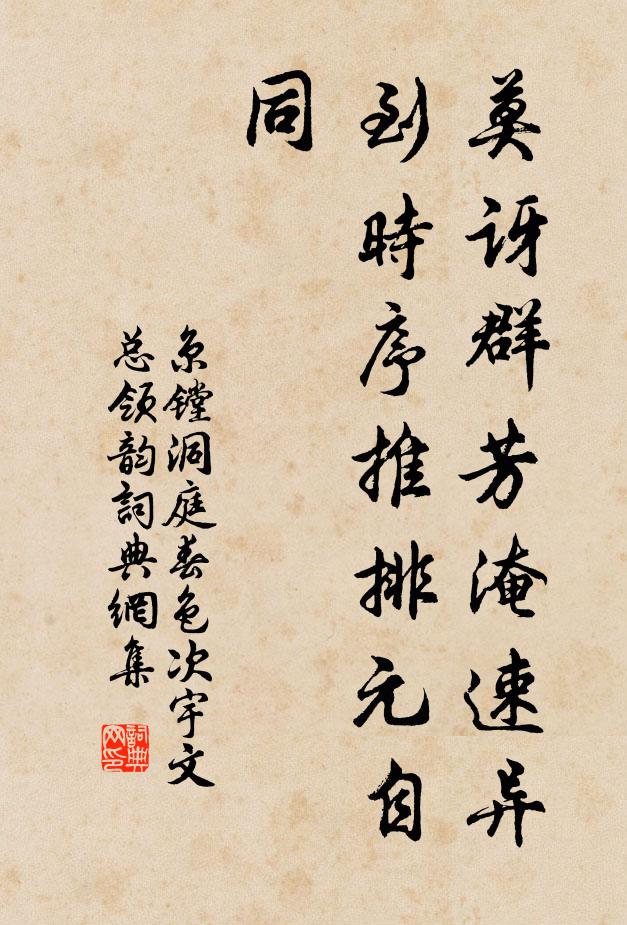 莫訝群芳淹速异
到時序推排元自
同
京镗洞庭春色次宇文
总领韵詞典網集
詞典网印